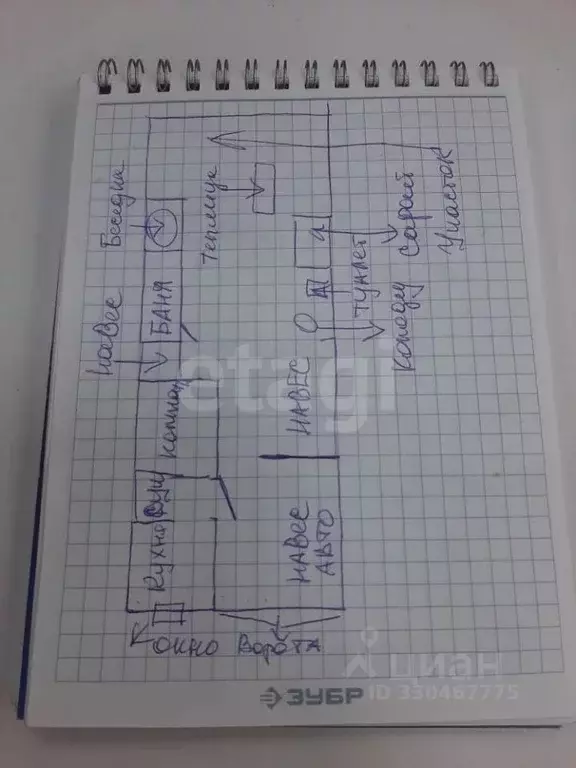 Беседка
Навес
БАНЯ
Теплица
Участок
Сарай
Туалет
Колодец
НАВЕС
Комната
Душ
Кухня
НАВЕС
АВТО
ОКНО
Ворота
etagi
циан
ID 330467775
ЗУБР